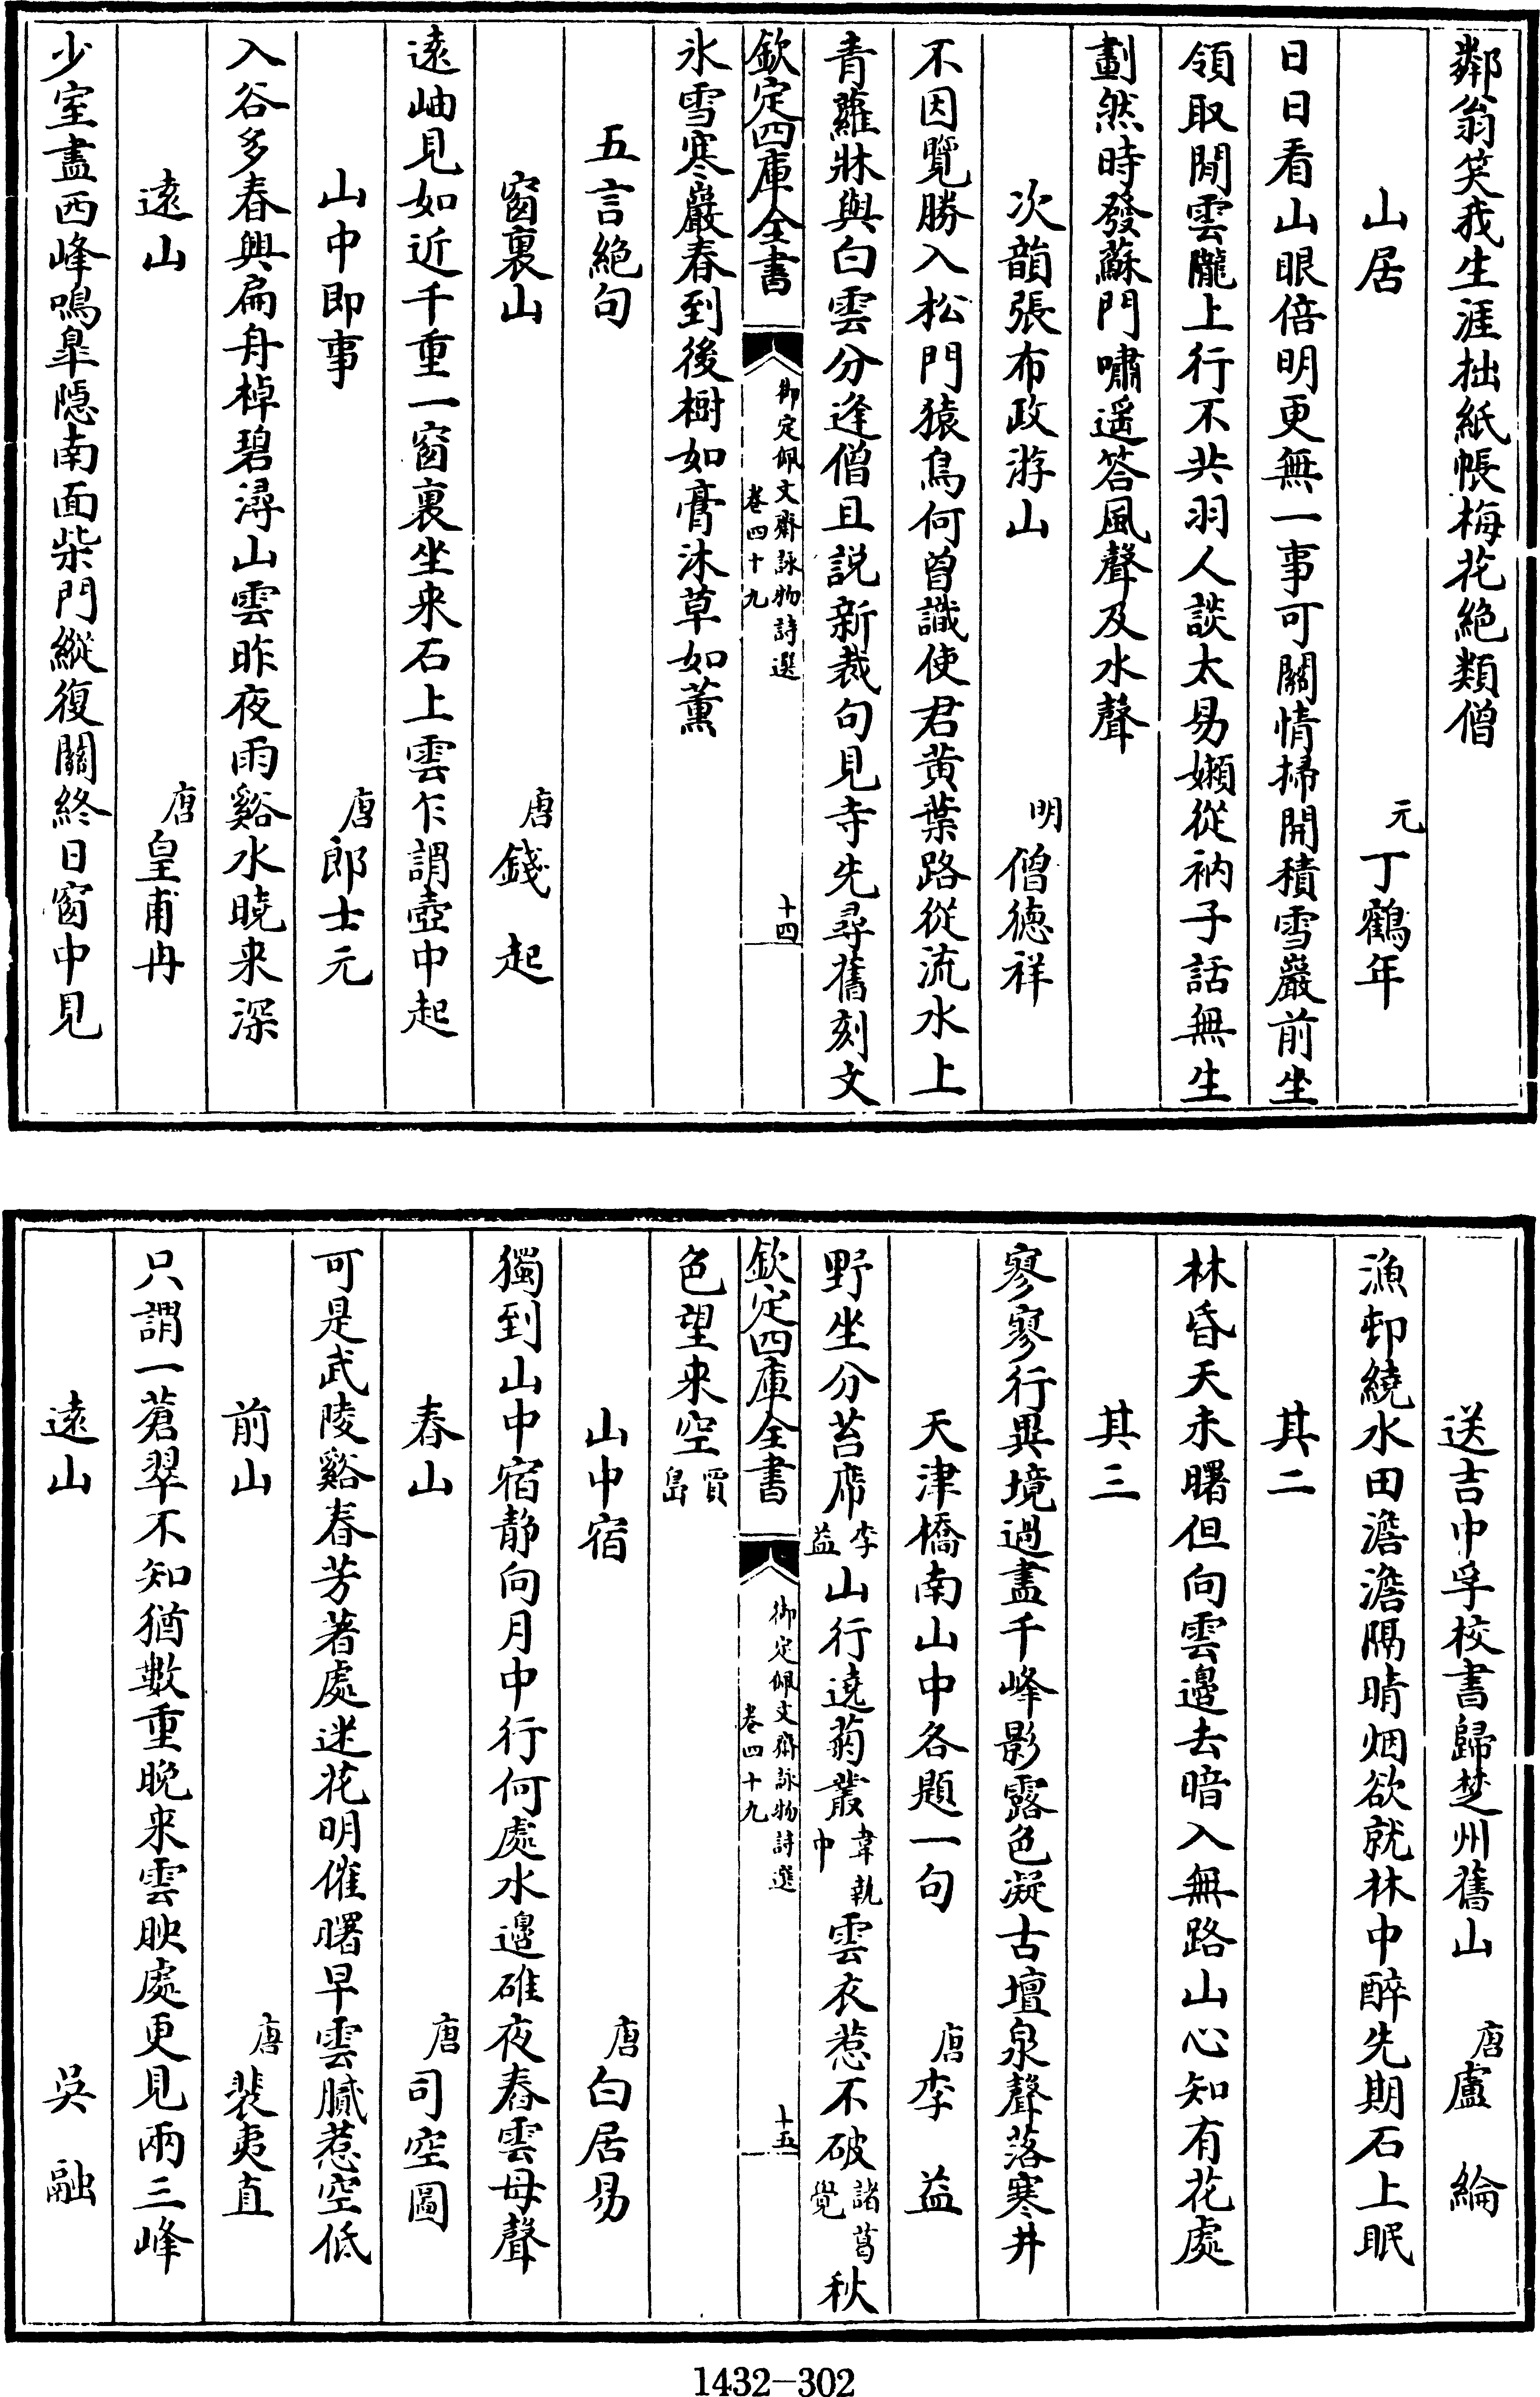 鄰翁笑我生涯拙紙帳梅花絶類僧
山居　元丁鶴年
日日看山眼倍明更無一事可關情掃開積雪巖前坐
領取閒雲隴上行不共羽人談太易嬾從衲子話無生
劃然時發蘇門嘯遥答風聲及水聲
次韻張布政游山　明僧徳祥
不因覽勝入松門猿鳥何曽識使君黄葉路從流水上
青蘿牀與白雲分逢僧且説新裁句見寺先尋舊刻文
欽定四庫全書　御定佩文齋詠物詩選　卷四十九　十四
氷雪寒巖春到後樹如膏沐草如薰
五言絶句
窗裏山　唐錢起
逺岫見如近千重一窗裏坐来石上雲乍謂壺中起
山中即事　唐郎士元
入谷多春興扁舟棹碧潯山雲昨夜雨谿水曉来深
逺山　唐皇甫冉
少室盡西峰鳴臯隠南面柴門縱復關終日窗中見
送吉中孚校書歸楚州舊山　唐盧綸
漁邨繞水田澹澹隔晴烟欲就林中醉先期石上眠
其二
林昏天未曙但向雲邉去暗入無路山心知有花處
其三
寥寥行異境過盡千峰影露色凝古壇泉聲落寒井
天津橋南山中各題一句　唐李益
野坐分苔席李益山行遶菊叢韋執中雲衣惹不破諸葛覺秋
欽定四庫全書　御定佩文齋詠物詩選　卷四十九　十五
色望来空賈島
山中宿　唐白居易
獨到山中宿静向月中行何處水邉碓夜舂雲母聲
春山　唐司空圖
可是武陵谿春芳著處迷花明催曙早雲膩惹空低
前山　唐裴夷直
只謂一蒼翠不知猶數重晩来雲映處更見兩三峰
逺山　吳融
1432-302